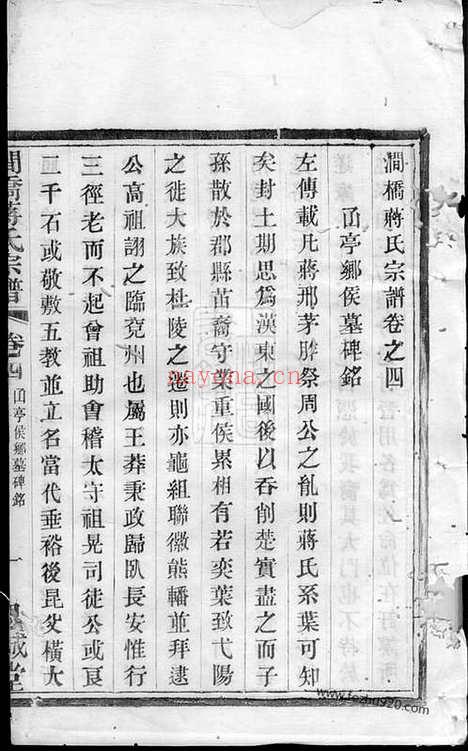 澗橋蔣氏宗譜卷之四
𠚍亭鄉侯墓碑銘
左傳載凡蔣邢茅胙祭周公之胤則蔣氏系葉可知
矣封土期思爲漢東之國後以吞削楚實盡之而子
孫散於郡縣苗裔守榮重侯累相有若奕葉致弋陽
之徙大族致杜陵之遷則亦龜組聯徽熊轓並拜逮
公高祖詡之臨兗州也屬王莽秉政歸臥長安惟行
三徑老而不起曾祖助會稽太守祖晃司徒公或良
二千石或敬敷五教並立名當代垂裕後昆父橫大
澗橋蔣氏宗譜
卷之四
亭侯鄉墓碑銘
一
誠堂
nayona.cn
www.fozhu920.com